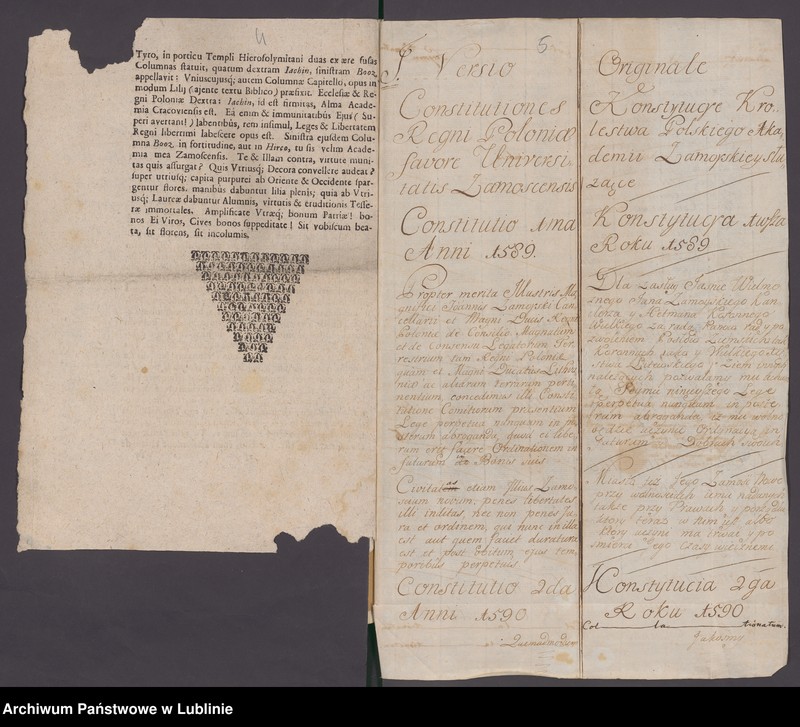 Tyro, in porticu Templi Hierosolymitani duas ex ære fusas
Columnas statuit, quatum dextram Iachin, sinistram Booz
appellavit: Vniuscujusq; autem Columnæ Capitello, opus in
modum Lilij (ajente textu Biblico) præfixit. Ecclesiæ & Re-
gni Poloniæ Dextra: Iachin, id est firmitas, Alma Acade-
mia Cracoviensis est. Eâ enim & immunitatibus Ejus (Su-
peri avertant!) labentibus, rem insimul, Leges & Libertatem
Regni liberrimi labescere opus est. Sinistra ejusdem Colu-
mna Booz, in fortitudine, aut in Hirco, tu sis velim Acade-
mia mea Zamoscensis. Te & Illam contra, virtute muni-
tas quis assurgat? Quis Vtriusq; Decora convellere audeat?
super utriusq; capita purpurei ab Oriente & Occidente spar-
gentur flores. manibus dabuntur lilia plenis; quia ab Vtri-
usq; Laureæ dabuntur Alumnis, virtutis & eruditionis Tesse-
ræ immortales. Amplificate Vtræq; bonum Patriæ! bo-
nos Ei Viros, Cives bonos suppeditate! Sit vobiscum bea-
ta, sit florens, sit incolumis.
5
Versio
Constitutiones
Regni Poloniæ
favore Universi
tatis Zamoscensis
Constitutio 1ma
Anni 1589.
Propter merita Illustris Ma
gnifici Joannis Zamoyski Can
cellarii et Magni Ducis Regni
Poloniæ de Consilio Magnatum
et de Consensu Legatorum Ter
restrium tam Regni Poloniæ
quàm et Magni Ducatus Lithua
niæ ac aliarum terrarum perti
nentium concedimus illi Consti
tutione Comitiorum præsentium
Lege perpetua nunquam in po
strum abroganda, quod ei libe
rum erit facere Ordinationem in
futurum de Bonis suis.
Civitatem etiam Illius Zamo
scium novum, penes libertates
illi inditas, nec non penes ju
ra et ordinem, qui nunc in illa
est aut quem faciet duratura
est et post obitum ejus tem
poribus perpetuis
Constitutio 2da
Anni 1590
Quemadmodum
Originale
Konstytucye Kro
lestwa Polskiego Aka
demii Zamoyskiey słu
żące
Konstytucya 1wsza
Roku 1589
Dla zasług Jasnie Wielmo
żnego Jana Zamoyskiego Kan
clerza y Hetmana Koronnego
Wielkiego za radą Panow Rad y po
zwoleniem Posłow Ziemskich tak
Koronnych jako y Wielkiego Xię
stwa Litewskiego y Ziem innych
należących pozwalamy mu
Seymu ninieyszego Lege
perpetua nunquam in poste
rum abroganda, iż mu wolno
będzie uczynić Ordinatią in
futurum Dobrach swoich
Miasto też Jego Zamość Nowe
przy wolnościach temu nadanych
także przy Prawach y porządku
ktory teraz w nim jest albo
ktory uczyni ma trwać y po
śmierci jego czasy wiecznemi
Konstytucia 2ga
Roku 1590
Col la tionatum.
Jakośmy
Archiwum Państwowe w Lublinie